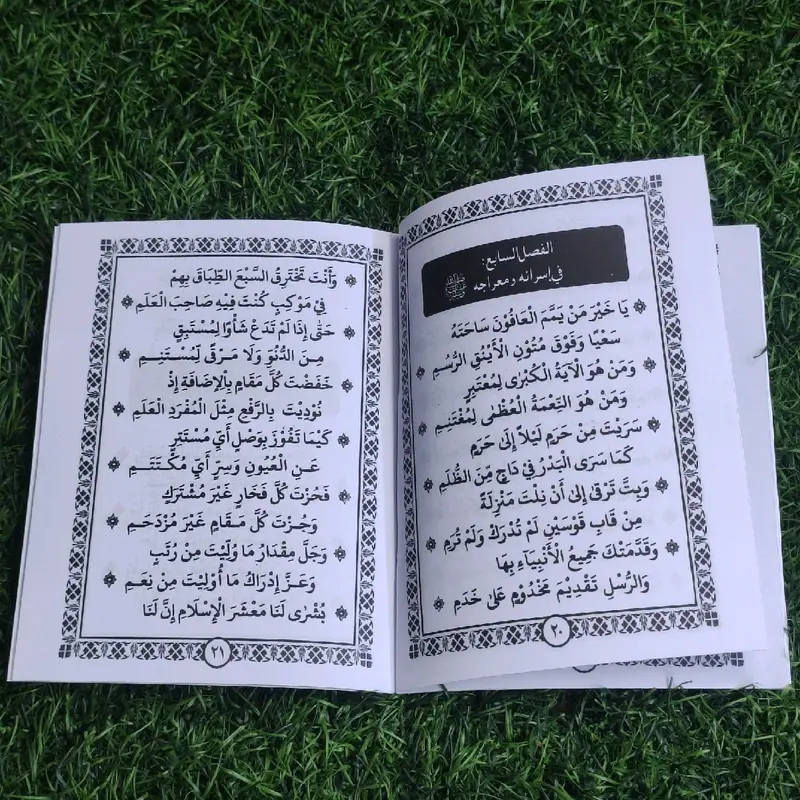 الفصل السابع:
في إسرائه ومعراجه ﷺ
يَا خَيْرَ مَنْ يَمَّمَ الْعَافُونَ سَاحَتَهُ
سَعْيًا وَفَوْقَ مُتُوْنِ الْأَيْنُقِ الرُّسُمِ
وَمَنْ هُوَ الْآيَةُ الْكُبْرٰى لِمُعْتَبِرٍ
وَمَنْ هُوَ النِّعْمَةُ الْعُظْمٰى لِمُغْتَنِمِ
سَرَيْتَ مِنْ حَرَمٍ لَيْلًا إِلَى حَرَمٍ
كَمَا سَرَى الْبَدْرُ فِيْ دَاجٍ مِّنَ الظُّلَمِ
وَبِتَّ تَرْقَى إِلَى أَنْ نِلْتَ مَنْزِلَةً
مِنْ قَابِ قَوْسَيْنِ لَمْ تُدْرَكْ وَلَمْ تُرَمِ
وَقَدَّمَتْكَ جَمِيعُ الْأَنْبِيَآءِ بِهَا
وَالرُّسْلِ تَقْدِيْمَ مَخْدُوْمٍ عَلَى خَدَمِ
٢٠
وَأَنْتَ تَخْتَرِقُ السَّبْعَ الطِّبَاقَ بِهِمْ
فِيْ مَوْكِبٍ كُنْتَ فِيْهِ صَاحِبَ الْعَلَمِ
حَتّٰى إِذَا لَمْ تَدَعْ شَأْوًا لِمُسْتَبِقٍ
مِنَ الدُّنُوِّ وَلَا مَرْقًى لِمُسْتَنِمِ
خَفَضْتَ كُلَّ مَقَامٍ بِالْإِضَافَةِ إِذْ
نُوْدِيْتَ بِالرَّفْعِ مِثْلَ الْمُفْرَدِ الْعَلَمِ
كَيْمَا تَفُوْزَ بِوَصْلٍ أَيِّ مُسْتَتِرٍ
عَنِ الْعُيُوْنِ وَسِرٍّ أَيِّ مُكْتَتَمِ
فَحُزْتَ كُلَّ فَخَارٍ غَيْرَ مُشْتَرَكٍ
وَجُزْتَ كُلَّ مَقَامٍ غَيْرَ مُزْدَحَمِ
وَجَلَّ مِقْدَارُ مَا وُلِّيْتَ مِنْ رُتَبٍ
وَعَزَّ إِدْرَاكُ مَا أُوْلِيْتَ مِنْ نِعَمِ
بُشْرٰى لَنَا مَعْشَرَ الْإِسْلَامِ إِنَّ لَنَا
٢١